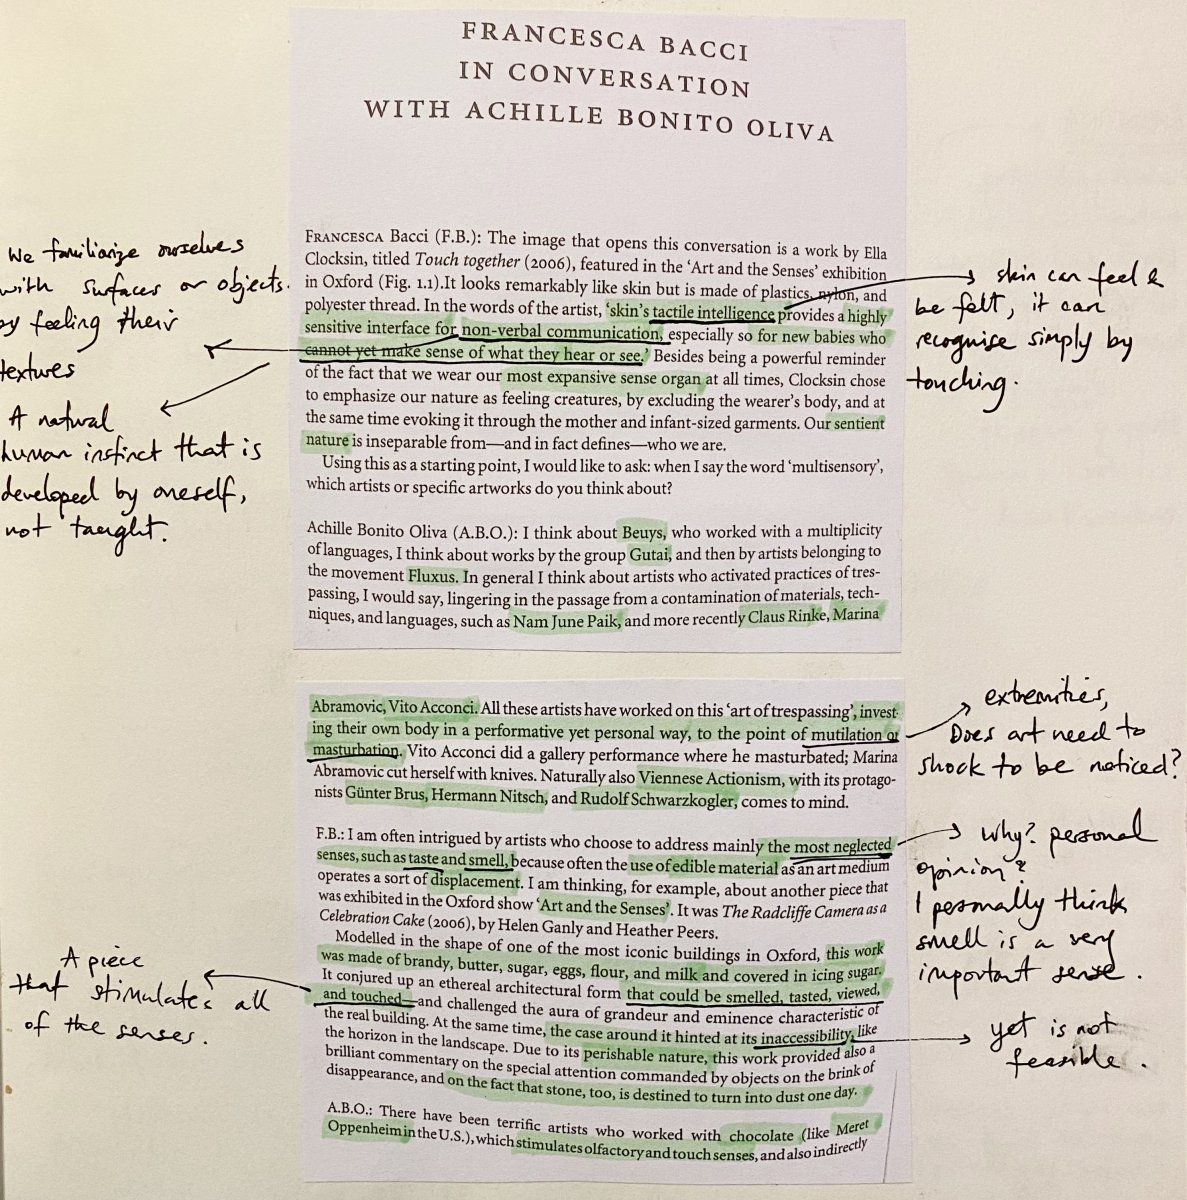 FRANCESCA BACCI
IN CONVERSATION
WITH ACHILLE BONITO OLIVA
FRANCESCA BACCI (F.B.): The image that opens this conversation is a work by Ella
Clocksin, titled Touch together (2006), featured in the ‘Art and the Senses’ exhibition
in Oxford (Fig. 1.1).It looks remarkably like skin but is made of plastics, nylon, and
polyester thread. In the words of the artist, ‘skin's tactile intelligence provides a highly
sensitive interface for non-verbal communication, especially so for new babies who
cannot yet make sense of what they hear or see.’ Besides being a powerful reminder
of the fact that we wear our most expansive sense organ at all times, Clocksin chose
to emphasize our nature as feeling creatures, by excluding the wearer's body, and at
the same time evoking it through the mother and infant-sized garments. Our sentient
nature is inseparable from—and in fact defines—who we are.
Using this as a starting point, I would like to ask: when I say the word ‘multisensory’,
which artists or specific artworks do you think about?
Achille Bonito Oliva (A.B.O.): I think about Beuys, who worked with a multiplicity
of languages, I think about works by the group Gutai, and then by artists belonging to
the movement Fluxus. In general I think about artists who activated practices of tres-
passing, I would say, lingering in the passage from a contamination of materials, tech-
niques, and languages, such as Nam June Paik, and more recently Claus Rinke, Marina
We familiarize ourselves
with surfaces or objects.
by feeling their
textures
A natural
human instinct that is
developed by oneself,
not taught.
skin can feel &
be felt, it can
recognise simply by
touching.
Abramovic, Vito Acconci. All these artists have worked on this ‘art of trespassing’, invest-
ing their own body in a performative yet personal way, to the point of mutilation or
masturbation. Vito Acconci did a gallery performance where he masturbated; Marina
Abramovic cut herself with knives. Naturally also Viennese Actionism, with its protago-
nists Günter Brus, Hermann Nitsch, and Rudolf Schwarzkogler, comes to mind.
F.B.: I am often intrigued by artists who choose to address mainly the most neglected
senses, such as taste and smell, because often the use of edible material as an art medium
operates a sort of displacement. I am thinking, for example, about another piece that
was exhibited in the Oxford show ‘Art and the Senses’. It was The Radcliffe Camera as a
Celebration Cake (2006), by Helen Ganly and Heather Peers.
Modelled in the shape of one of the most iconic buildings in Oxford, this work
was made of brandy, butter, sugar, eggs, flour, and milk and covered in icing sugar.
It conjured up an ethereal architectural form that could be smelled, tasted, viewed,
and touched—and challenged the aura of grandeur and eminence characteristic of
the real building. At the same time, the case around it hinted at its inaccessibility, like
the horizon in the landscape. Due to its perishable nature, this work provided also a
brilliant commentary on the special attention commanded by objects on the brink of
disappearance, and on the fact that stone, too, is destined to turn into dust one day.
A.B.O.: There have been terrific artists who worked with chocolate (like Meret
Oppenheim in the U.S.), which stimulates olfactory and touch senses, and also indirectly
extremities,
Does art need to
shock to be noticed?
why? personal
opinion?
I personally think
smell is a very
important sense.
yet is not
feasible.
A piece
that stimulates all
of the senses.